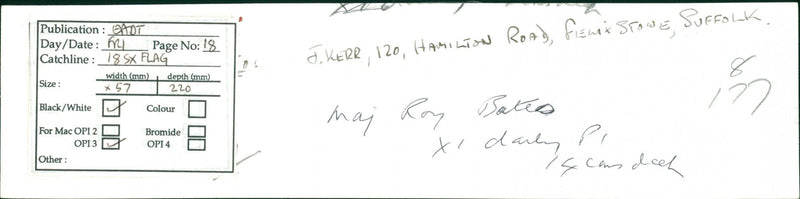 Publication : EADT
Day/Date : FRI Page No: 18
Catchline : 18SX FLAG
width (mm) depth (mm)
Size : x 57 220
Black/White Colour
For Mac OPI 2 Bromide
OPI 3 OPI 4
Other :
J. KERR, 120, HAMILTON ROAD, FELIXSTOWE, SUFFOLK.
8
177
Maj Roy Bates
x1 P1